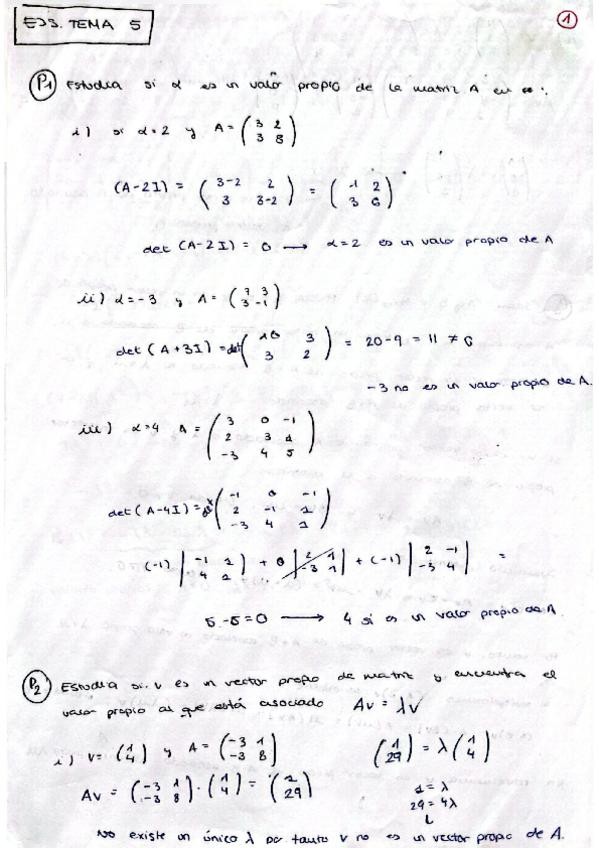 EJS. TEMA 5
1
P1 Estudia si α es un valor propio de la matriz A en
i) si α=2 y A = (3 2 / 3 8)
(A-2I) = (3-2 2 / 3 3-2) = (1 2 / 3 6)
det (A-2I) = 0 → α=2 es un valor propio de A
ii) α=-3 y A = (7 3 / 3 -1)
det (A+3I) = det (10 3 / 3 2) = 20-9 = 11 ≠ 0
-3 no es un valor propio de A.
iii) α=4 A = (3 0 -1 / 2 3 1 / -3 4 5)
det (A-4I) = det (-1 0 -1 / 2 -1 1 / -3 4 1)
(-1) |-1 1 / 4 1| + 0 |2 1 / -3 1| + (-1) |2 -1 / -3 4| =
5-5=0 → 4 si es un valor propio de A.
P2 Estudia si v es un vector propio de matriz y encuentra el
valor propio al que está asociado Av = λv
i) v = (1 / 4) y A = (-3 1 / -3 8) (1 / 29) = λ (1 / 4)
Av = (-3 1 / -3 8) · (1 / 4) = (1 / 29) 1 = λ
29 = 4λ
No existe un único λ por tanto v no es un vector propio de A.